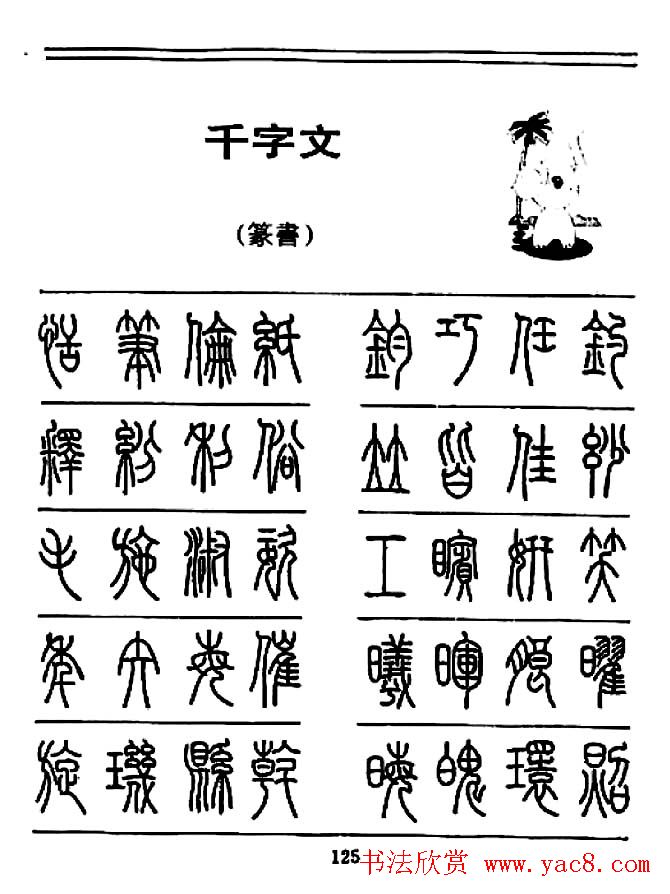 千字文
(篆書)
恬筆倫紙 鈞巧任釣
釋紛利俗 竝皆佳妙
毛施淑姿 工矉妍笑
年矢每催 曦暉朗曜
旋璣縣斡 晦魄環照
125
书法欣赏 www.yac8.com